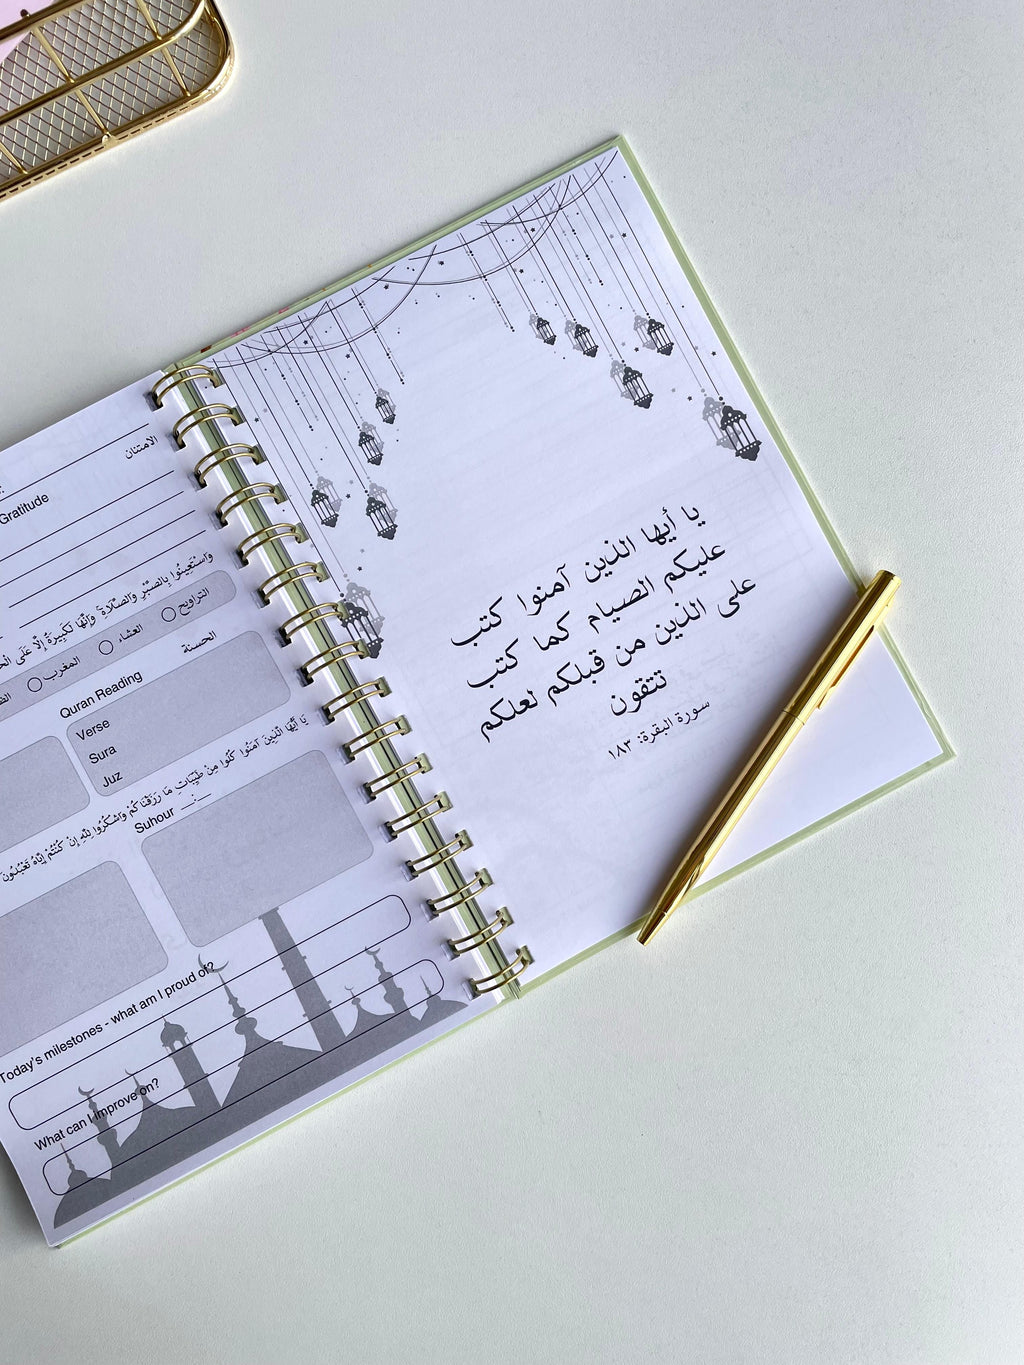 الامتنان
Gratitude
وَاسْتَعِينُوا بِالصَّبْرِ وَالصَّلَاةِ وَإِنَّهَا لَكَبِيرَةٌ إِلَّا عَلَى
التراويح
العشاء
المغرب
الحسنة
Quran Reading
Verse
Sura
Juz
يَا أَيُّهَا الَّذِينَ آمَنُوا كُلُوا مِنْ طَيِّبَاتِ مَا رَزَقْنَاكُمْ وَاشْكُرُوا لِلَّهِ إِنْ كُنْتُمْ إِيَّاهُ تَعْبُدُونَ
Suhour __:__
Today's milestones - what am I proud of?
What can I improve on?
يا أيها الذين آمنوا كتب
عليكم الصيام كما كتب
على الذين من قبلكم لعلكم
تتقون
سورة البقرة: ١٨٣